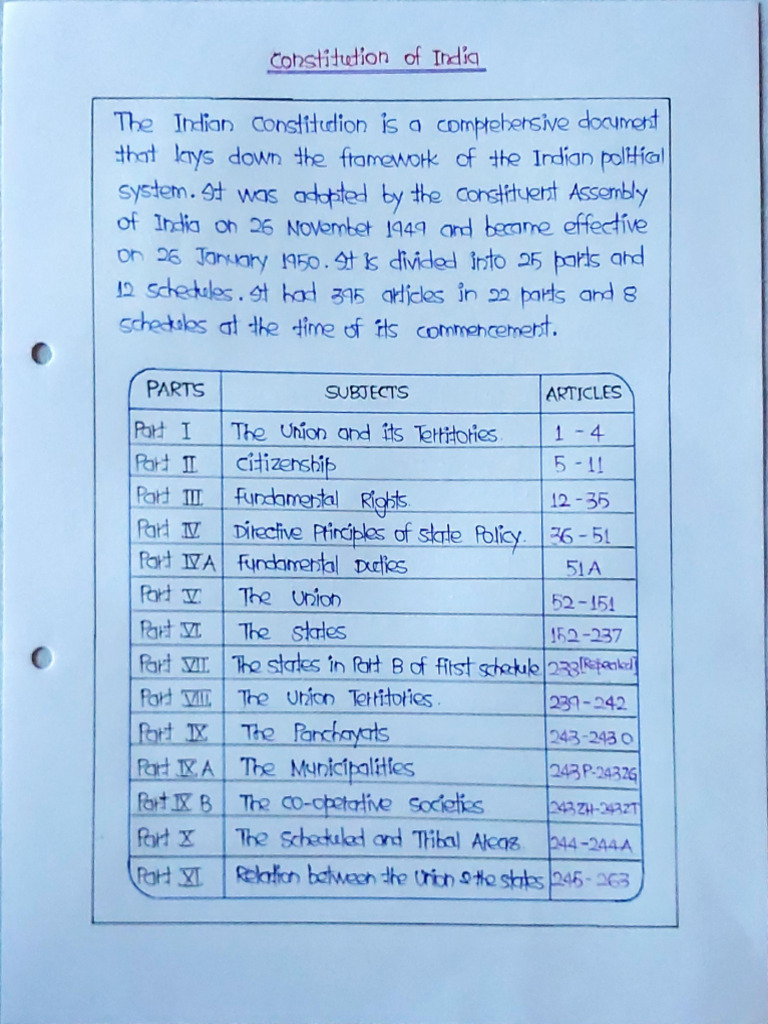 Constitution of India
The Indian Constitution is a comprehensive document
that lays down the framework of the Indian political
system. It was adopted by the Constituent Assembly
of India on 26 November 1949 and became effective
on 26 January 1950. It is divided into 25 parts and
12 schedules. It had 395 articles in 22 parts and 8
schedules at the time of its commencement.
PARTS SUBJECTS ARTICLES
Part I The Union and its Territories. 1 - 4
Part II Citizenship 5 - 11
Part III Fundamental Rights. 12 - 35
Part IV Directive Principles of State Policy. 36 - 51
Part IV A Fundamental Duties 51 A
Part V The Union 52 - 151
Part VI The States 152 - 237
Part VII The States in Part B of First Schedule 238 [Repealed]
Part VIII The Union Territories. 239 - 242
Part IX The Panchayats 243 - 243 O
Part IX A The Municipalities 243P - 243ZG
Part IX B The Co-operative Societies 243ZH - 243ZT
Part X The Scheduled and Tribal Areas 244 - 244A
Part XI Relation between the Union & the States 245 - 263